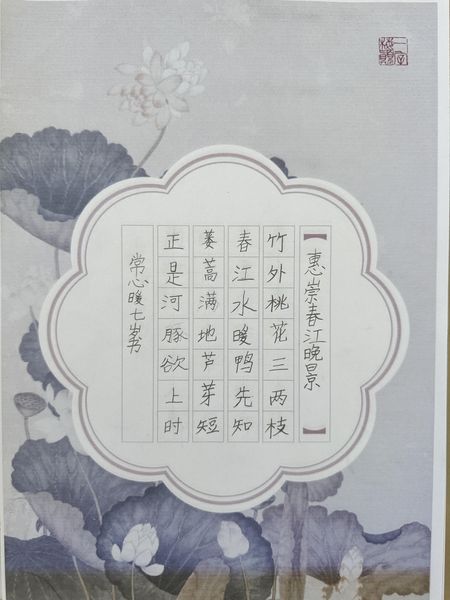 【惠崇春江晚景】
竹外桃花三两枝
春江水暖鸭先知
蒌蒿满地芦芽短
正是河豚欲上时
常心暖七岁书